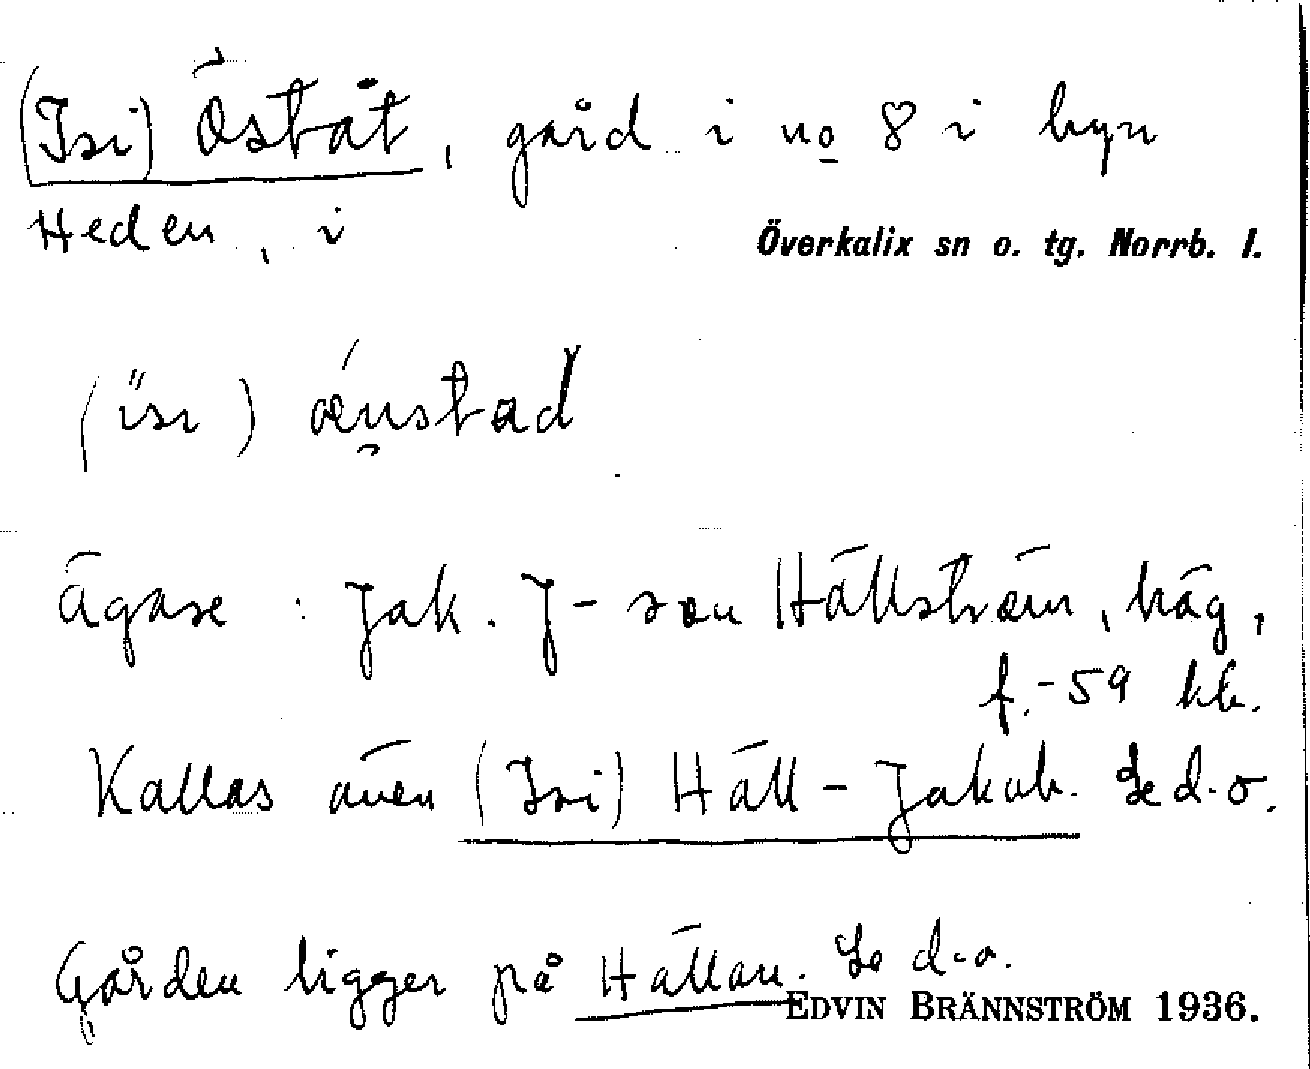 (Isi) Öståt, gård i no 8 i byn
Heden, i
Överkalix sn o. tg. Norrb. l.
( isi )
Ägare : Jak. J-son Hällström, häg,
f.-59 kb.
Kallas även (Isi) Häll-Jakob. Se d.o.
Gården ligger på Hällan. Se d.o.
EDVIN BRÄNNSTRÖM 1936.